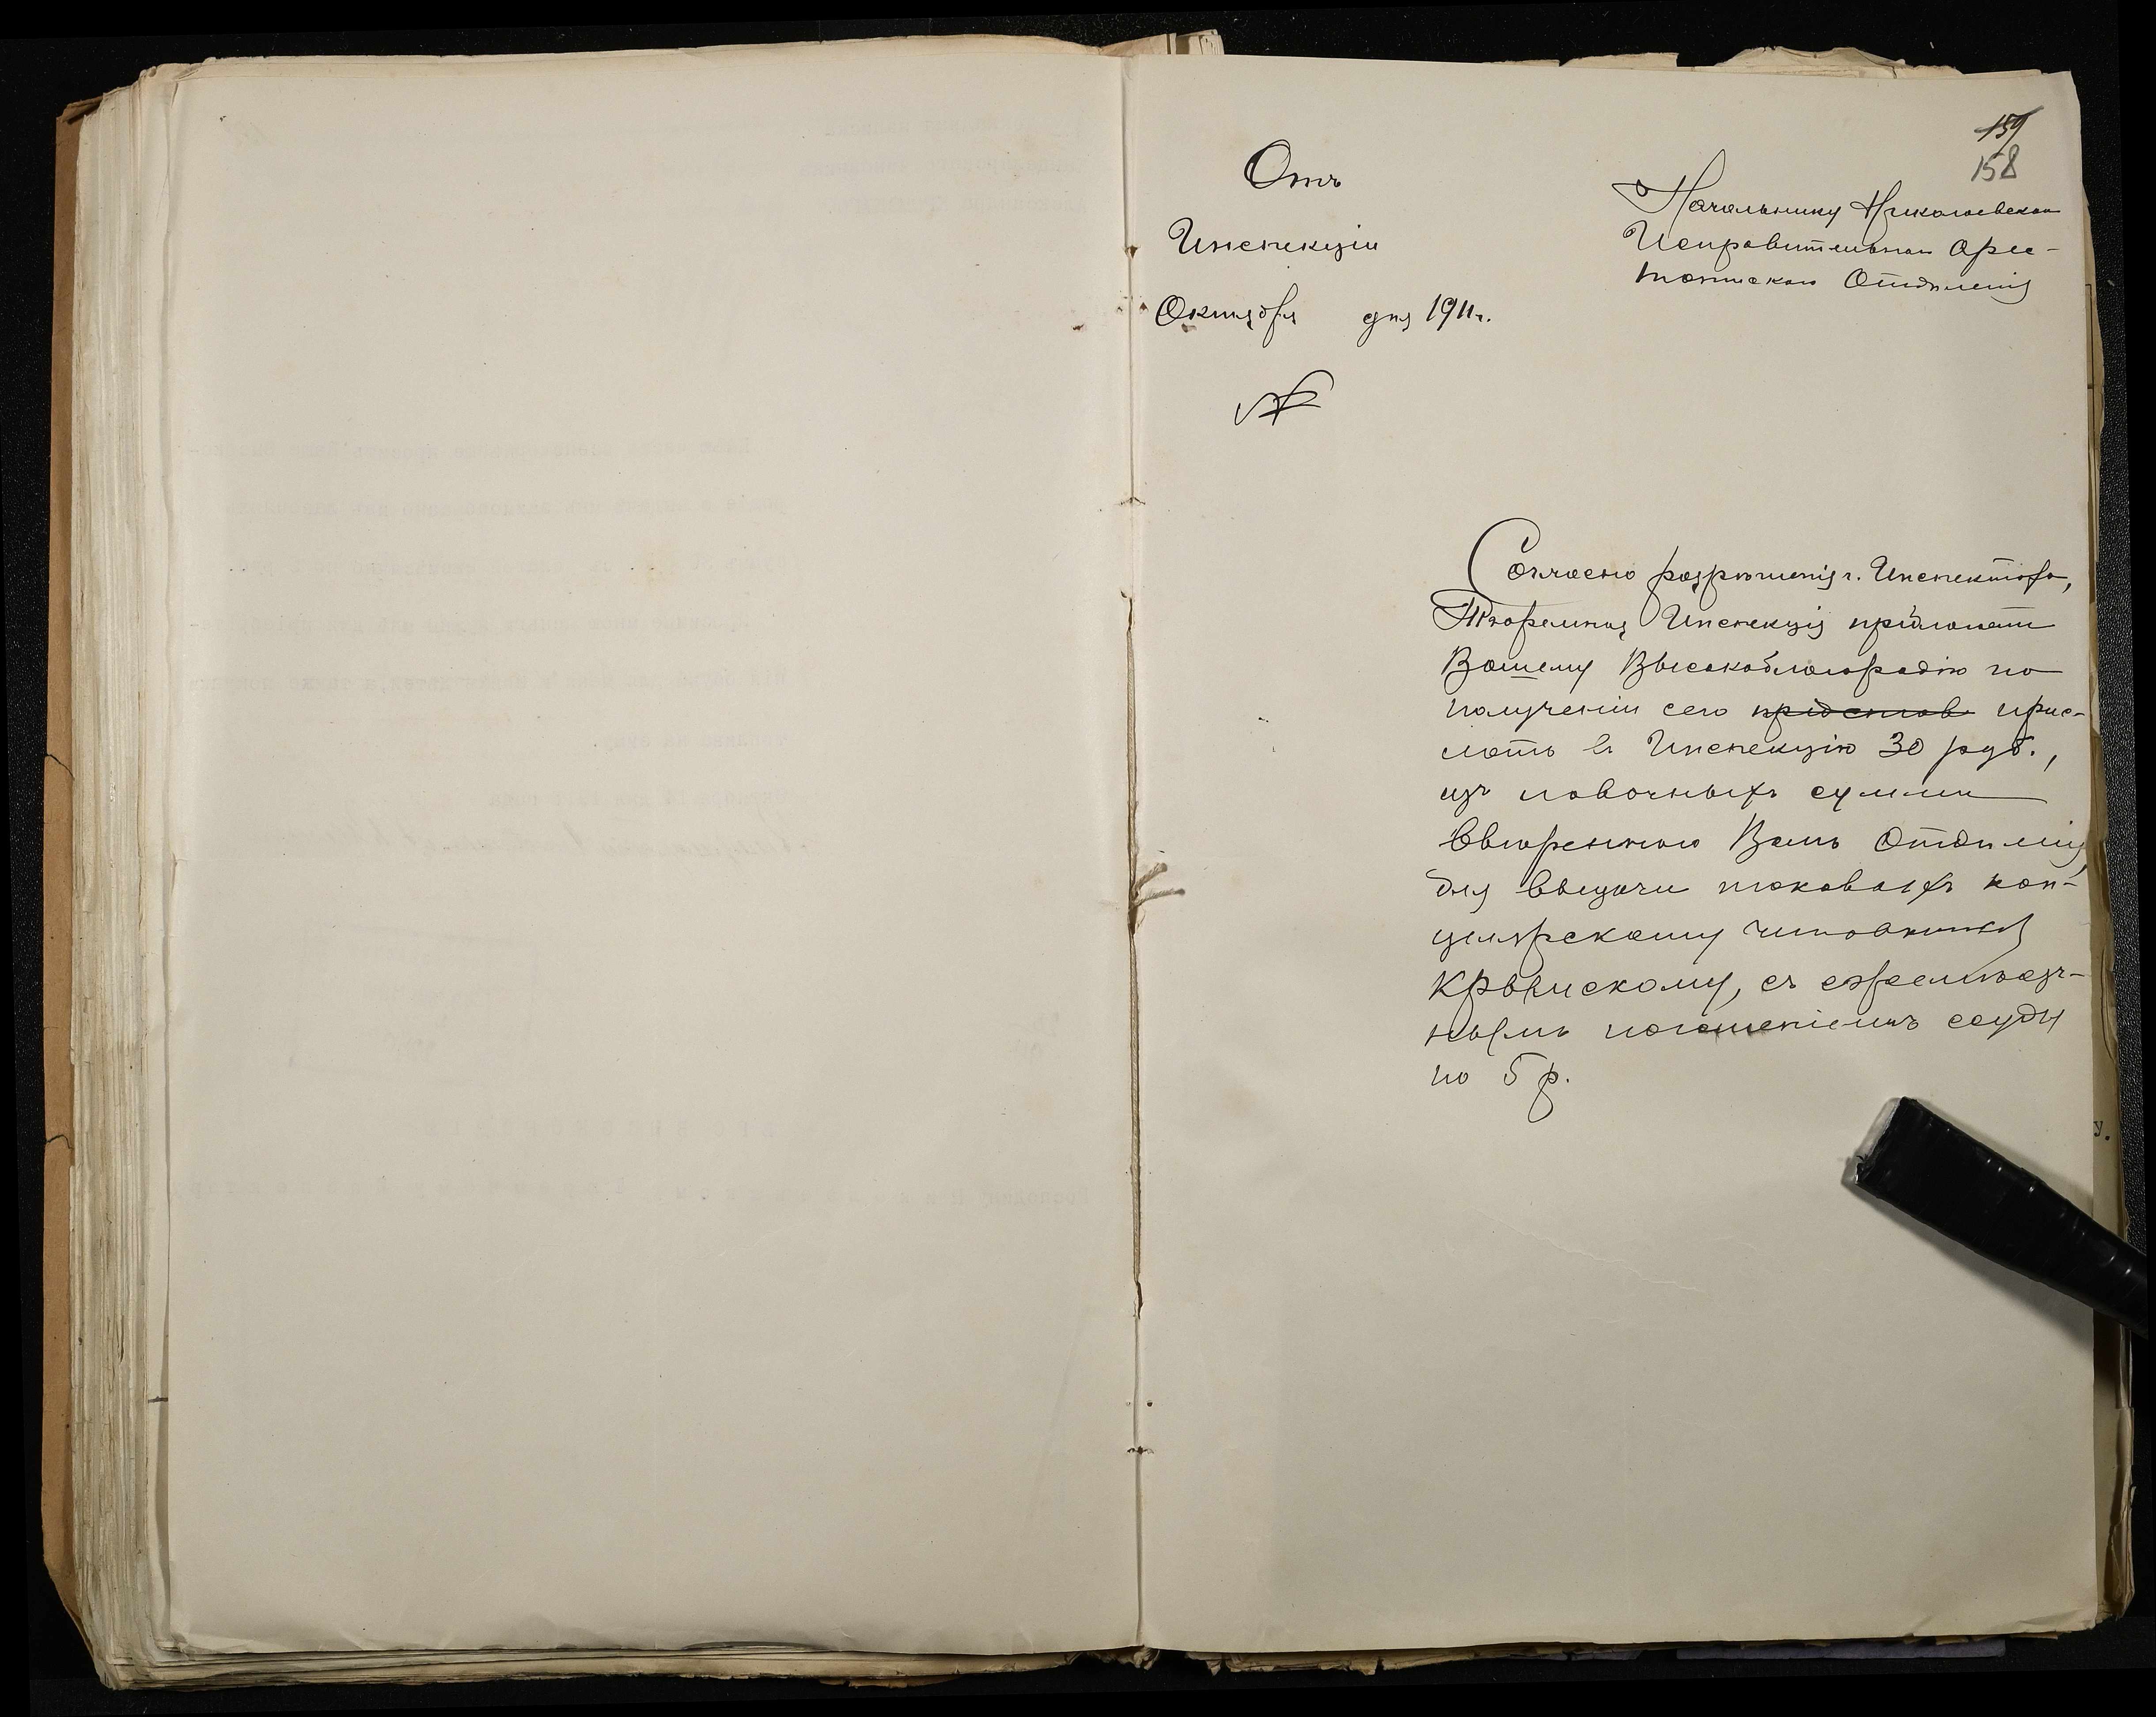 159
158
Отъ
Инспекціи
Октября дня 1911 г.
№
Начальнику Николаевскаго
Исправительнаго Арес-
тантскаго Отдѣленія
Согласно разрѣшенія г. Инспектора,
Тюремная Инспекція предлагаетъ
Вашему Высокоблагородію по
полученіи сего представ прис-
лать въ Инспекцію 30 руб.,
изъ лавочныхъ суммъ
ввѣреннаго Вамъ Отдѣленія,
для выдачи таковыхъ кан-
целярскому чиновнику
Крымскому, съ ежемѣсяч-
нымъ погашеніемъ ссуды
по 5 р.
у.